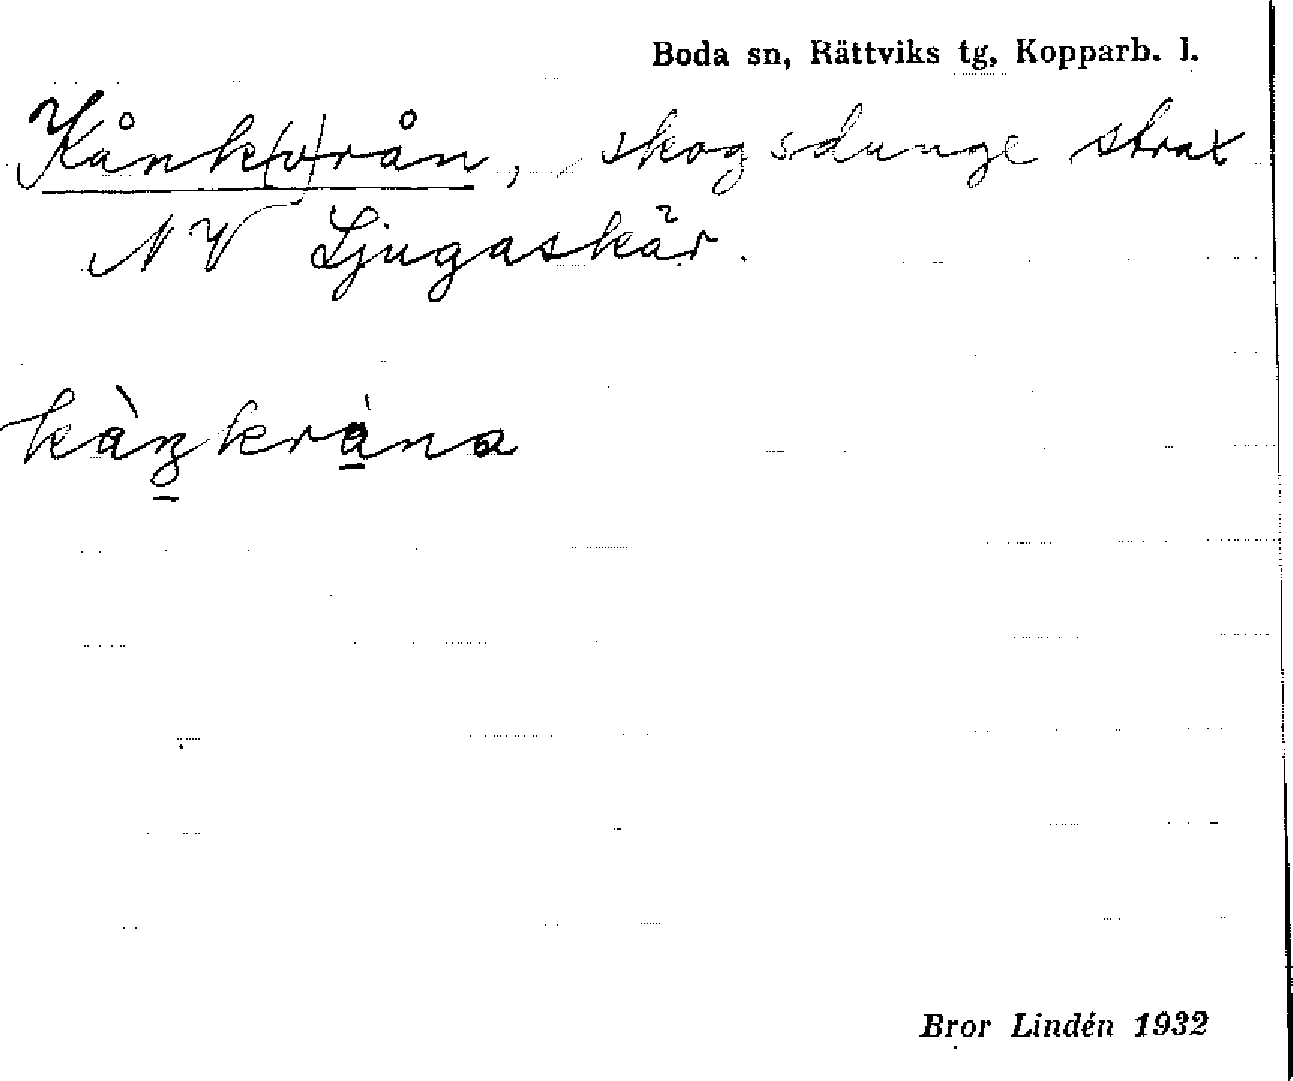 Boda sn, Rättviks tg, Kopparb. l.
Kånk(v)rån, skogsdunge strax
NV Ljugaskär.
kàŋkràna
Bror Lindén 1932